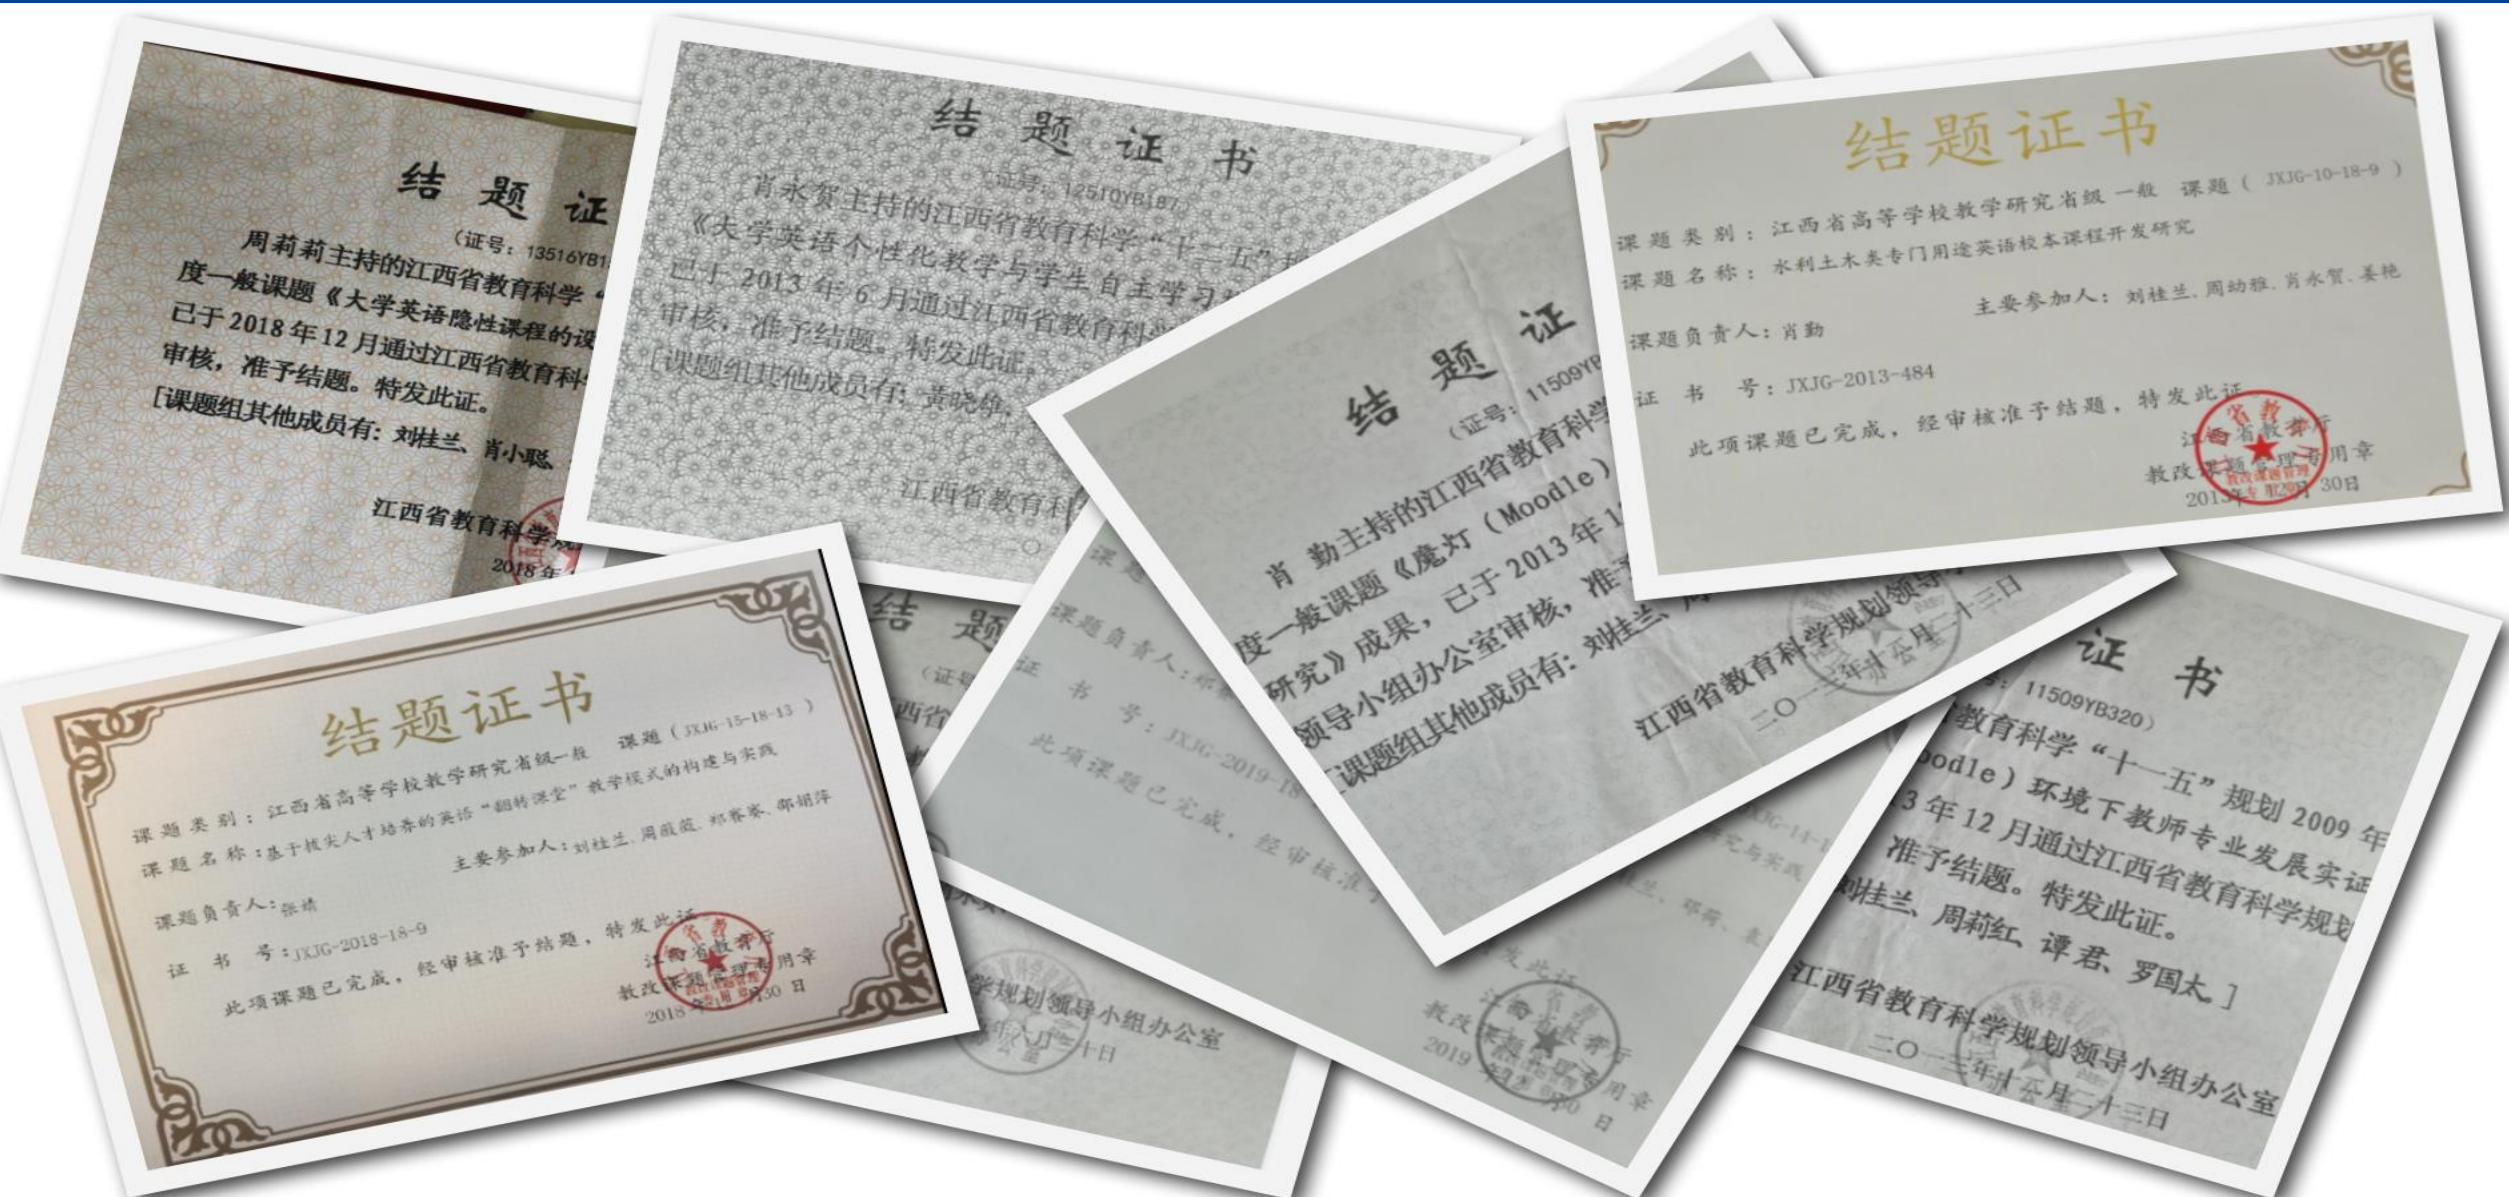 结题证
（证号：13516YB1
周莉莉主持的江西省教育科学“
度一般课题《大学英语隐性课程的设
已于2018年12月通过江西省教育科
审核，准予结题。特发此证。
[课题组其他成员有：刘桂兰、肖小聪、
江西省教育科学规
2018年
结题证书
（证号：12510YB187）
肖永贺主持的江西省教育科学“十二五”规
《大学英语个性化教学与学生自主学习
已于2013年6月通过江西省教育科学
审核，准予结题。特发此证。
[课题组其他成员有：黄晓雄、
江西省教育科
结题证
（证号：11509YB
肖 勤主持的江西省教育科学
度一般课题《魔灯（Moodle）
研究》成果，已于2013年1
领导小组办公室审核，准予
[课题组其他成员有：刘桂兰、周
江西省教育科学规划领导小
二〇一三年十二月二十三日
结题证书
课题类别：江西省高等学校教学研究省级一般 课题（ JXJG-10-18-9 ）
课题名称：水利土木类专门用途英语校本课程开发研究
课题负责人：肖勤 主要参加人：刘桂兰、周幼雅、肖永贺、姜艳
证 书 号：JXJG-2013-484
此项课题已完成，经审核准予结题，特发此证
江西省教育厅
教改课题管理专用章
2013年12月30日
结题证书
课题类别：江西省高等学校教学研究省级一般 课题（JXJG-15-18-13 ）
课题名称：基于拔尖人才培养的英语“翻转课堂”教学模式的构建与实践
课题负责人：张婧 主要参加人：刘桂兰、周薇薇、郑赛芬、鄢娟萍
证 书 号：JXJG-2018-18-9
此项课题已完成，经审核准予结题，特发此证
江西省教育厅
教改课题管理专用章
2018年12月30日
结题
（证号
西省
学规划领导小组办公室
年六月三十日
课题
课题负责人：邓
证 书 号：JXJG-2019-18
此项课题已完成，经审核准予
JXJG-14-1
究与实践
邓荷、袁
发此证
江西省教育厅
教改课题管理专用章
2019年12月30日
证书
号：11509YB320）
教育科学“十一五”规划2009年
oodle）环境下教师专业发展实证
3年12月通过江西省教育科学规划
准予结题。特发此证。
刘桂兰、周莉红、谭君、罗国太。]
江西省教育科学规划领导小组办公室
二〇一三年十二月二十三日